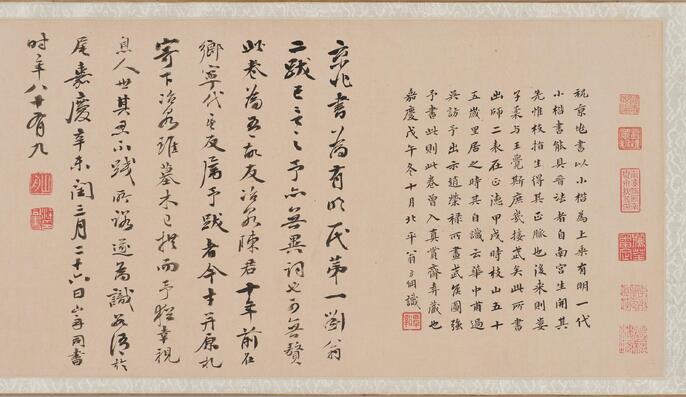 祝京兆書以小楷為上乘有明一代
小楷書能具晉法者自南宮生開其
先惟枝指生得其正脈也後來則婁
子柔与王覺斯庶幾接武矣此所書
出師二表在正德甲戌時枝山五十
五歲里居之時其自識云華中甫過
吳訪予出示趙榮祿所畫武侯圖強
予書此則此卷曾入真賞齋齋藏也
嘉慶戊午冬十月北平翁方綱識
京兆書為有明一代第一劉翁
二跋已言之予亦無異詞也可無贅
此卷為吾故友冶泉陳君十年前在
鄉寧代之友屬予跋者今并原札
寄下冶泉雖墓木已拱而予猶幸視
息人世其忍不踐所諾遂為識數語於
尾嘉慶辛未閏三月二十六日山舟同書
時年八十有九